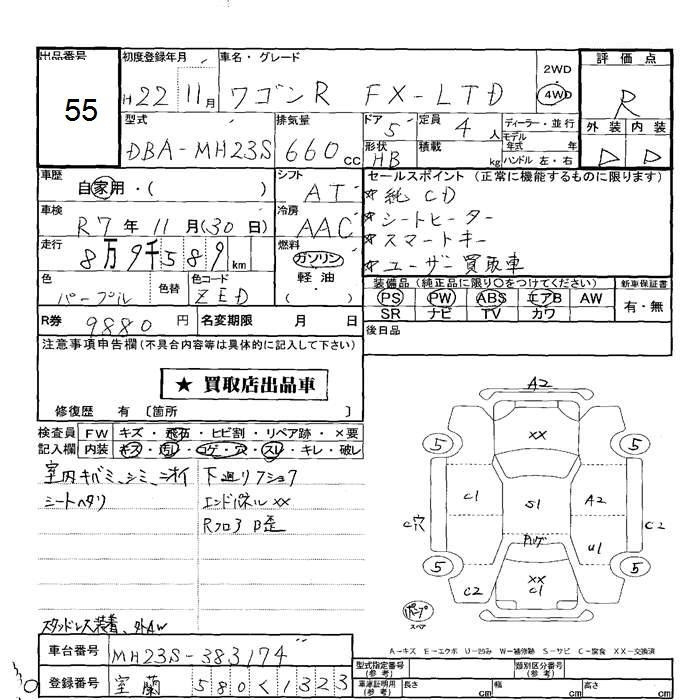 出品番号 初度登録年月 車名・グレード 2WD 評価点
55 H22 11月 ワゴンR FX-LTD 4WD R
型式 排気量 ドア 5 定員 4 人 ディーラー・並行 外装 内装
モデル年式 年
DBA-MH23S 660 cc 形状 HB 積載 kg ハンドル 左・右 D D
車歴 シフト セールスポイント (正常に機能するものに限ります)
自家用・( ) AT ☆純CD
車検 冷房 ☆シートヒーター
R7年 11月(30日) AAC ☆スマートキー
走行 燃料 ☆ユーザー買取車
8万9千589km ガソリン
軽・油
色 色替 色コード 装備品 (純正品に限り○をつけてください) 新車保証書
パープル ZED PS PW ABS エアB AW 有・無
SR ナビ TV カワ
R券 9880円 名変期限 月 日 後日品
注意事項申告欄(不具合内容等は具体的に記入して下さい)
★ 買取店出品車
修復歴 有 〔箇所 〕
検査員 FW キズ・飛石・ヒビ割・リペア跡・×要
記入欄 内装 キズ・汚レ・コゲ・穴・スレ・キレ・破レ
室内キバミ、シミ、ニオイ 下廻リフショク
シートヘタリ エンドパネルXX
Rフロア 歪
A2
XX
5 5
C1 S1 A2
C穴 C2
U1
5 5
C2 XX C1
スペア
スタッドレス装着、外AW
A-キズ E-エクボ U-凹み W-補修跡 S-サビ C-腐食 XX-交換済
車台番号 MH23S-383174 型式指定番号(参考) 類別区分番号(参考)
登録番号 室蘭 580 く 1323 車庫証明用(参考) 長さ cm 幅 cm 高さ cm